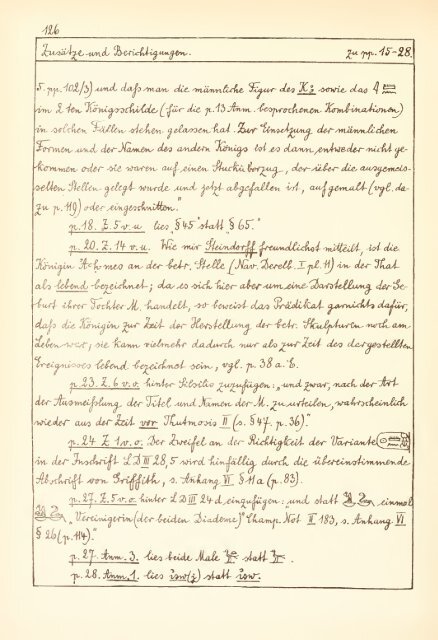 126
Zusätze und Berichtigungen. zu pp. 15-28.
S. pp. 102/3) und daß man die männliche Figur des K. 2 sowie das
im 2ten Königsschilde (für die p. 13 Anm. besprochenen Kombinationen)
in solchen Fällen stehen gelassen hat. Zur Einsetzung der männlichen
Formen und der Namen des andern Königs ist es dann entweder nicht ge-
kommen oder sie waren auf einen Stucküberzug, der über die ausgemeis-
selten Stellen gelegt wurde und jetzt abgefallen ist, aufgemalt (vgl. da-
zu p. 119) oder eingeschnitten."
p. 18. Z. 5 v. u. lies „§ 45" statt § 65."
p. 20. Z. 14 v. u. Wie mir Steindorff freundlichst mitteilt, ist die
Königin Aḥ-mes an der betr. Stelle (Nav. Derelb. I pl. 11) in der That
als lebend bezeichnet; da es sich hier aber um eine Darstellung der Ge-
burt ihrer Tochter M. handelt, so beweist das Prädikat garnichts dafür,
daß die Königin zur Zeit der Herstellung der betr. Skulpturen noch am
Leben war; sie kann vielmehr dadurch nur als zur Zeit des dargestellten
Ereignisses lebend bezeichnet sein, vgl. p. 38 a. E.
p. 23. Z. 6 v. o. hinter Silsilis zuzufügen: „und zwar, nach der Art
der Ausmeißlung der Titel und Namen der M. zu urteilen, wahrscheinlich
wieder aus der Zeit vor Thutmosis II (s. § 47. p. 36)."
p. 24 Z 1 v. o. Der Zweifel an der Richtigkeit der Variante
in der Inschrift LD III 28, 5 wird hinfällig durch die übereinstimmende
Abschrift von Griffith, s. Anhang VI § 11a (p. 83).
p. 27. Z. 5 v. o. hinter LD III 24 d, einzufügen: „und statt einmal
„Vereinigerin (der beiden Diademe)" Champ. Not II 183, s. Anhang VI
§ 26 (p. 114)."
p. 27. Anm. 3. lies beide Male statt
p. 28. Anm. 1. lies statt